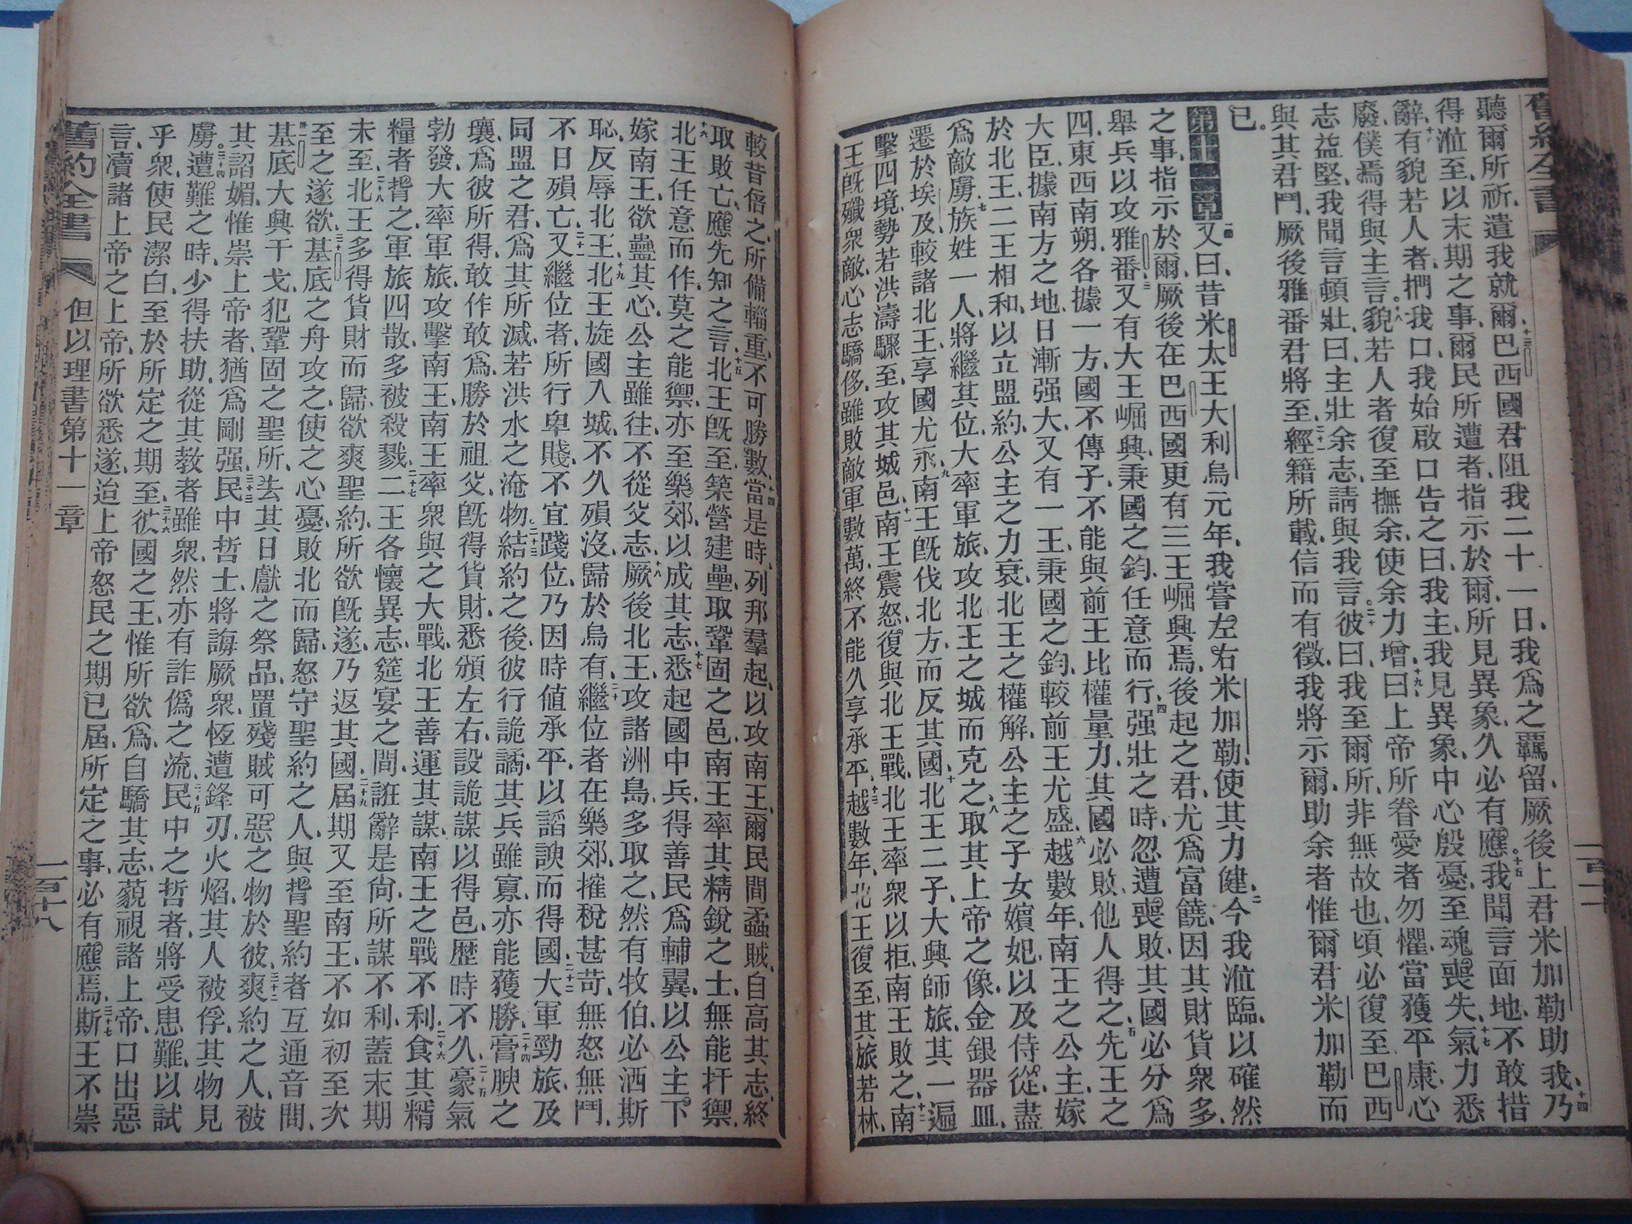 舊約全書
聽爾所祈、遣我就爾、十三巴西國君阻我二十一日、我爲之羈留、厥後上君米加勒助我、十四乃
得涖至、以末期之事、爾民所遭者、指示於爾、所見異象、久必有應。十五我聞言面地、不敢措
辭、十六有貌若人者、捫我口、我始啟口告之曰、我主、我見異象、中心殷憂、至魂喪失、氣力悉
廢、十七僕焉得與主言、十八貌若人者、復至撫余、使余力增、十九曰、上帝所眷愛者勿懼、當獲平康、心
志益堅、我聞言頓壯、曰、主壯余志、請與我言。二十彼曰、我至爾所、非無故也、頃必復至巴西
與其君鬥、厥後雅番君將至、二十一經籍所載、信而有徵、我將示爾、助余者惟爾君米加勒而
已。
第十一章一又曰、昔米太王大利烏元年、我嘗左右米加勒、使其力健、二今我涖臨、以確然
之事、指示於爾、厥後在巴西國更有三王崛興焉、後起之君、尤爲富饒、因其財貨衆多、
舉兵以攻雅番、三又有大王崛興、秉國之鈞、任意而行、四强壯之時、忽遭喪敗、其國必分爲
四、東西南朔、各據一方、國不傳子、不能與前王比權量力、其國必敗、他人得之、五先王之
大臣、據南方之地、日漸强大、又有一王秉國之鈞、較前王尤盛、六越數年、南王之公主、嫁
於北王、二王相和、以立盟約、公主之力衰、北王之權解、公主之子女嬪妃、以及侍從、盡
爲敵虜、七族姓一人、將繼其位、大率軍旅、攻北王之城而克之、八取其上帝之像、金銀器皿、
遷於埃及、較諸北王、享國尤永、九南王旣伐北方、而反其國、十北王二子、大興師旅、其一遍
擊四境、勢若洪濤、驟至攻其城邑、十一南王震怒、復與北王戰、北王率衆以拒、南王敗之、十二南
王旣殲衆敵、心志驕侈、雖敗敵軍數萬、終不能久享承平、十三越數年、北王復至、其旅若林、
較昔倍之、所備輜重、不可勝數、十四當是時、列邦羣起、以攻南王、爾民間蟊賊、自高其志、終
取敗亡、應先知之言、十五北王旣至、築營建壘、取鞏固之邑、南王率其精銳之士、無能扞禦、
十六北王任意而作、莫之能禦、亦至樂郊、以成其志、十七悉起國中兵、得善民爲輔翼、以公主下
嫁南王、欲蠱其心、公主雖往、不從父志、十八厥後北王攻諸洲島、多取之、然有牧伯、必洒斯
恥、反辱北王、十九北王旋國入城、不久殞沒、歸於烏有、二十繼位者在樂郊、搉稅甚苛、無怒無鬥、
不日殞亡、二十一又繼位者、所行卑賤、不宜踐位、乃因時値承平、以諂諛而得國、二十二大軍勁旅、及
同盟之君、爲其所滅、若洪水之淹物、二十三結約之後、彼行詭譎、其兵雖寡、亦能獲勝、二十四膏腴之
壤、爲彼所得、敢作敢爲、勝於祖父、旣得貨財、悉頒左右、設詭謀以得邑、歷時不久、二十五豪氣
勃發、大率軍旅、攻擊南王、南王率衆與之大戰、北王善運其謀、南王之戰不利、二十六食其糈
糧者背之、軍旅四散、多被殺戮、二十七二王各懷異志、筵宴之間、誑辭是尙、所謀不利、蓋末期
未至、二十八北王多得貨財而歸、欲爽聖約、所欲旣遂、乃返其國、二十九屆期又至南王、不如初至次
至之遂欲、三十基底之舟攻之、使之心憂、敗北而歸、怒守聖約之人、與背聖約者互通音問、
三十一基底大興干戈、犯鞏固之聖所、去其日獻之祭品、置殘賊可惡之物於彼、三十二爽約之人、被
其謟媚、惟崇上帝者、猶爲剛强、三十三民中哲士、將誨厥衆、恆遭鋒刃火焰、其人被俘、其物見
虜、三十四遭難之時、少得扶助、從其教者雖衆、然亦有詐僞之流、三十五民中之哲者、將受患難、以試
乎衆、使民潔白、至於所定之期、三十六至彼國之王、惟所欲爲、自驕其志、藐視諸上帝、口出惡
言、凟諸上帝之上帝、所欲悉遂、迨上帝怒民之期已屆、所定之事、必有應焉、三十七斯王不崇
舊約全書 但以理書第十一章 一百十八